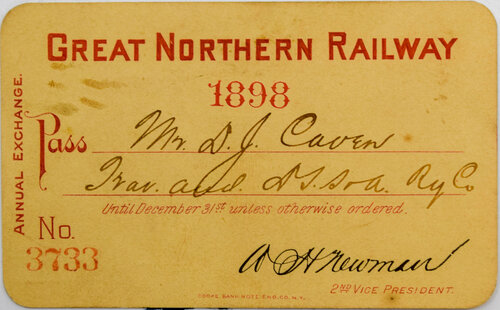 GREAT NORTHERN RAILWAY
1898
ANNUAL EXCHANGE.
Pass Mr. D. J. Caven
Trav. and. Ry Co
Until December 31st unless otherwise ordered.
No.
3733
W H Newman
2ND VICE PRESIDENT.
COOKE BANK NOTE ENG. CO. N.Y.